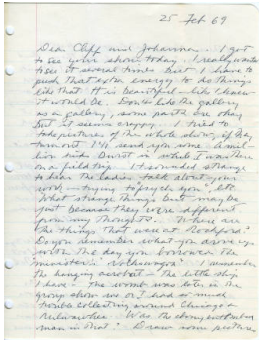 25 Feb 69
Dear Cliff and Johanna... I got
to see your show today. I really wanted
to see it several times but I have to
push that extra energy to do things
like that. It is beautiful - like I knew
it would be. Don't like the gallery
as a gallery, some parts are okay
but it seems crappy. I tried to
take pictures of the whole show, if they
turn out I'll send you some. A mil-
lion kids burst in while I was there
on a field trip. It sounded strange
to hear the ladies talk about your
work - trying to psych you, etc.
What strange things but maybe
just because they were different
from my thoughts. Where are
the things that were at Rockford?
Do you remember what you drove up
with the day you borrowed the
minister's Volkswagon? I remember
the hanging acrobat - the little ship
I have - The womb was later in the
group show we or I had so much
trouble collecting around Chicago &
Milwaukee. Was the ebony
man in that? Draw some pictures